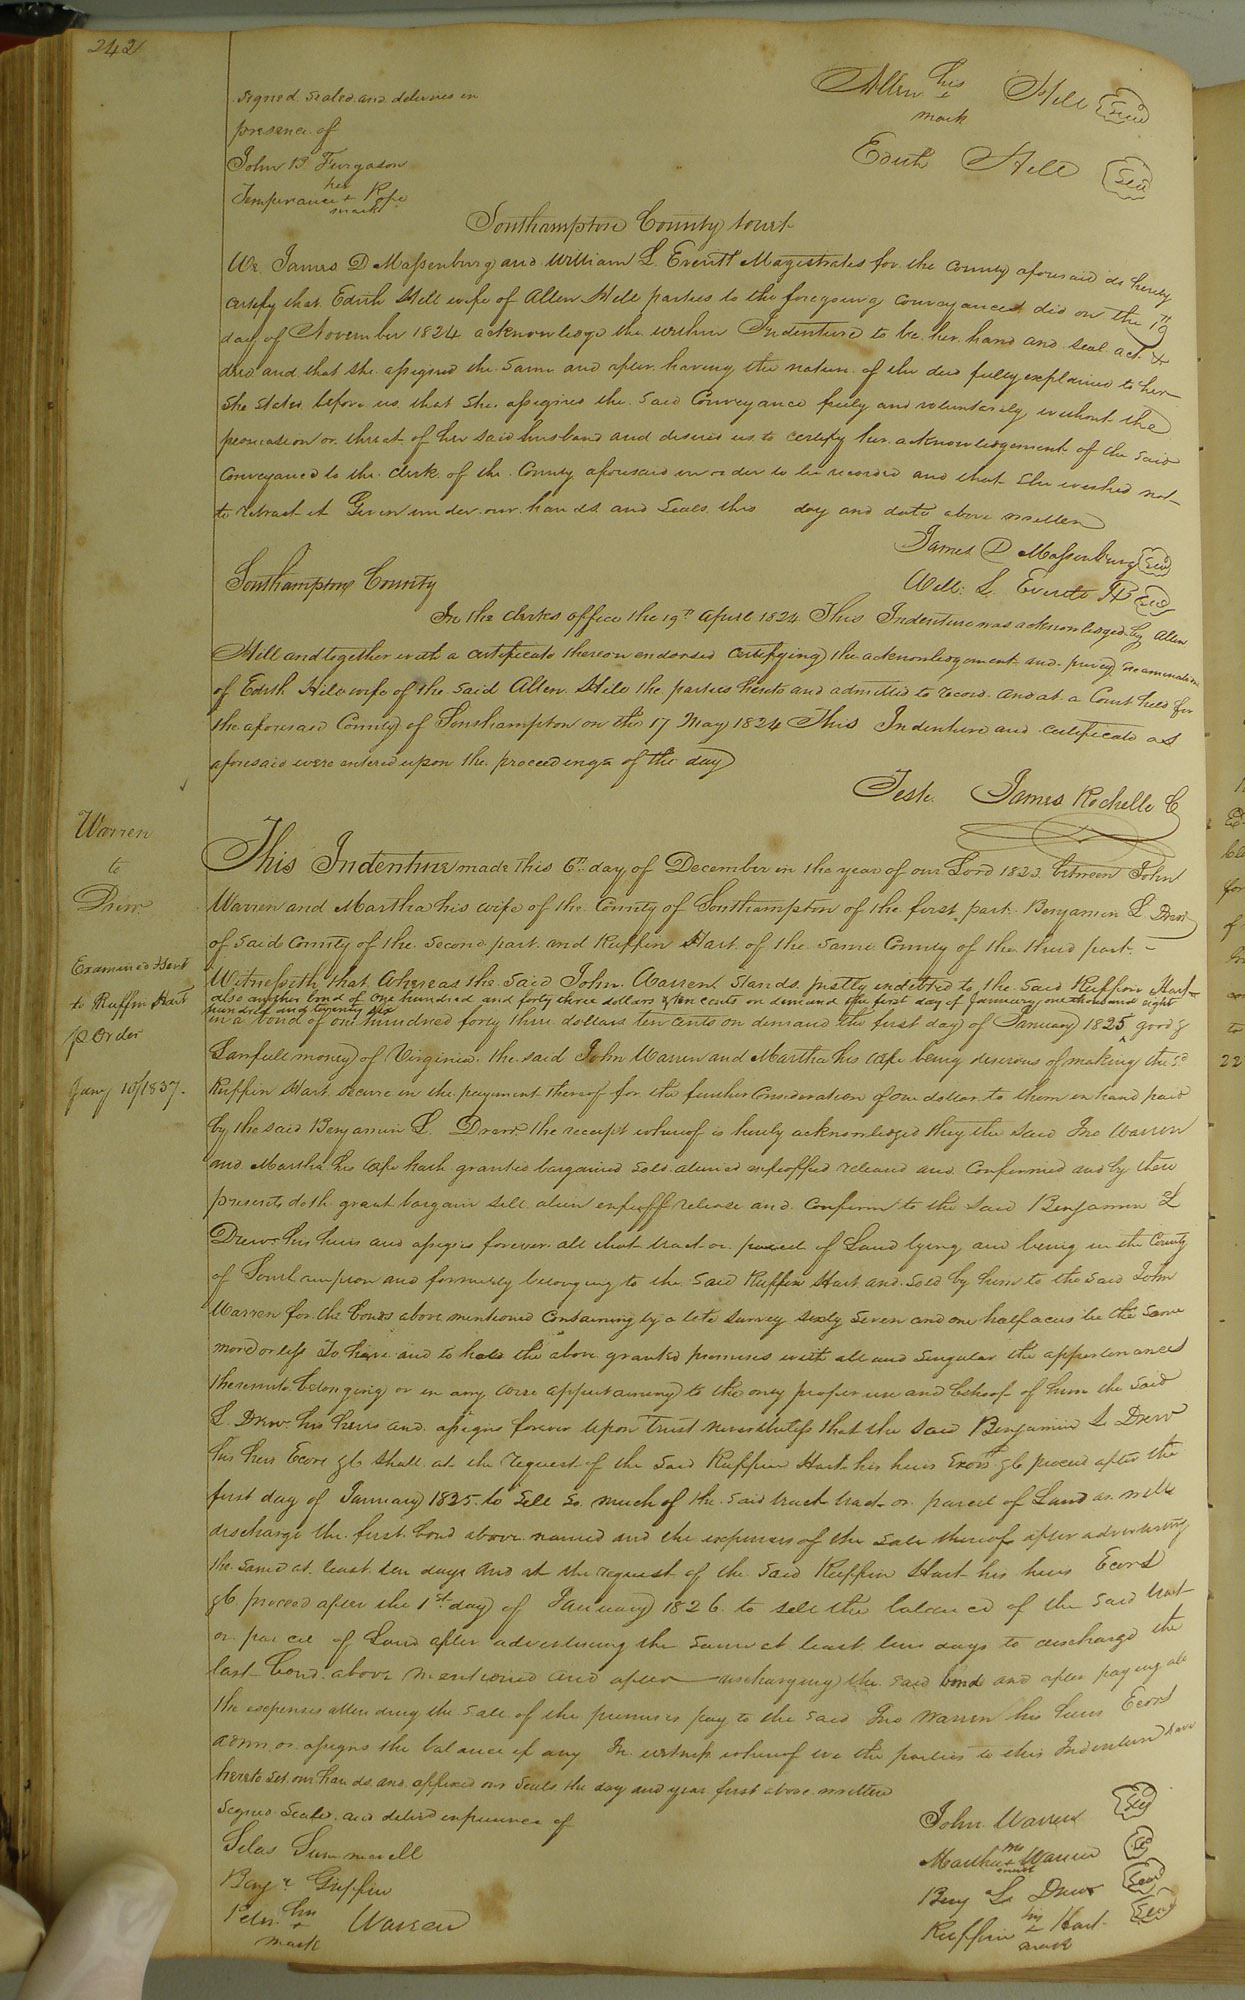 242
Signed Sealed and delivered in
presence of
John B. Furgason
Temperance her + mark Pope
Allen his + mark Hill Seal
Edith Hill Seal
Southampton County Court
We James D Massenburg and William L. Everitt Magistrates for the County aforesaid do hereby
certify that Edith Hill wife of Allen Hill parties to the foregoing Conveyance did on the 19th
day of November 1824 acknowledge the within Indenture to be her hand and seal act &
deed and that she assigned the same and after having the nature of the deed fully explained to her
She states before us that She assigned the said Conveyance freely and voluntarily without the
persuasion or threat of her said husband and desires us to certify her acknowledgement of the said
Conveyance to the clerk of the County aforesaid in order to be recorded and that She wished not
to retract it Given under our hands and Seals this day and date above written
James D Massenburg Seal
Will: L. Everitt JP Seal
Southampton County
In the clerks office the 19th April 1824 This Indenture was acknowledged by Allen
Hill and together with a certificate thereon endorsed certifying the acknowledgement and privy examination
of Edith Hill wife of the said Allen Hill the parties hereto and admitted to record. and at a Court held for
the aforesaid County of Southampton on the 17 May 1824 This Indenture and certificate as
aforesaid were entered upon the proceedings of the day
Teste. James Rochelle C
Warren
to
Drew
Examined & sent
to Ruffin Hart
p Order
Jany 10/1837.
This Indenture made this 6th day of December in the year of our Lord 1823 between John
Warren and Martha his wife of the County of Southampton of the first part Benjamin L Drew
of said County of the second part and Ruffin Hart of the same County of the third part -
Witnesseth that whereas the said John Warren stands justly indebted to the said Ruffin Hart
also another bond of one hundred and forty three dollars & ten cents on demand the first day of January one thousand eight
hundred and twenty six
in a bond of one hundred forty three dollars ten cents on demand the first day of January 1825 ^ good &
Lawfull money of Virginia. the said John Warren and Martha his wife being desirous of making the sd
Ruffin Hart secure in the payment thereof for the further Consideration of one dollar to them in hand paid
by the said Benjamin L. Drew the receipt whereof is hereby acknowledged they the said Jno Warren
and Martha his wife hath granted bargained sold aliened enfeoffed released and Confirmed and by these
presents doth grant bargain sell alien enfeoff release and Confirm to the said Benjamin L
Drew his heirs and assigns forever all that tract or parcel of Land lying and being in the County
of Southampton and formerly belonging to the said Ruffin Hart and sold by him to the said John
Warren for the bonds above mentioned Containing by a late survey sixty seven and one half acres be the same
more or less To have and to hold the above granted premises with all and singular the appertenances
thereunto belonging or in any wise appertaining to the only proper use and behoof of him the said
L. Drew his heirs and assigns forever upon trust nevertheless that the said Benjamin L Drew
his heirs Exors &c shall at the request of the said Ruffin Hart his heirs Exors &c proceed after the
first day of January 1825 to sell so much of the said track tract or parcel of Land as will
discharge the first bond above named and the expenses of the sale thereof after advertising
the same at least ten days And at the request of the said Ruffin Hart his heirs Exors
&c proceed after the 1st day of January 1826 to sell the balance of the said tract
or parcel of Land after advertising the same at least ten days to discharge the
last bond above mentioned and after discharging the said bond and after paying all
the expenses attending the sale of the premises pay to the said Jno Warren his heirs Exors
admrs or assigns the balance if any In witness whereof we the parties to this Indenture have
hereto set our hands and affixed our Seals the day and year first above written
Signed Sealed and delivd in presence of
Silas Summerell
Benja Griffin
Peter his + mark Warren
John Warren Seal
Martha her + mark Warren Seal
Benj L. Drew Seal
Ruffin his + mark Hart Seal